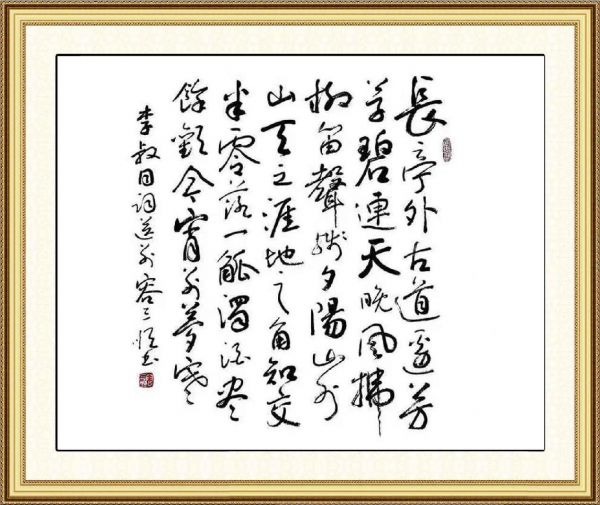 長亭外古道邊芳
草碧連天晚風拂
柳笛聲殘夕陽山外
山天之涯地之角知交
半零落一觚濁酒盡
餘歡今宵別夢寒
李叔同詞送別容三書